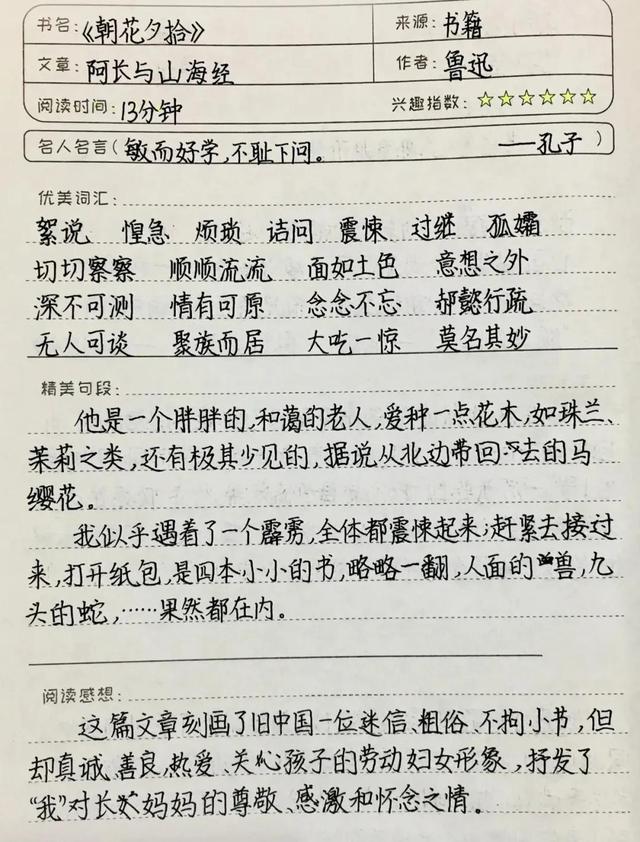 书名:《朝花夕拾》 来源:书籍
文章:阿长与山海经 作者:鲁迅
阅读时间:13分钟 兴趣指数:☆☆☆☆☆☆
名人名言(敏而好学,不耻下问。 ——孔子)
优美词汇:
絮说 惶急 烦琐 诘问 震悚 过继 孤孀
切切察察 顺顺流流 面如土色 意想之外
深不可测 情有可原 念念不忘 郝懿行疏
无人可谈 聚族而居 大吃一惊 莫名其妙
精美句段:
他是一个胖胖的,和蔼的老人,爱种一点花木,如珠兰、
茉莉之类,还有极其少见的,据说从北边带回去的马
缨花。
我似乎遇着了一个霹雳,全体都震悚起来;赶紧去接过
来,打开纸包,是四本小小的书,略略一翻,人面的兽,九
头的蛇,……果然都在内。
阅读感想:
这篇文章刻画了旧中国一位迷信、粗俗、不拘小节,但
却真诚、善良、热爱、关心孩子的劳动妇女形象,抒发了
“我”对长妈妈的尊敬、感激和怀念之情。